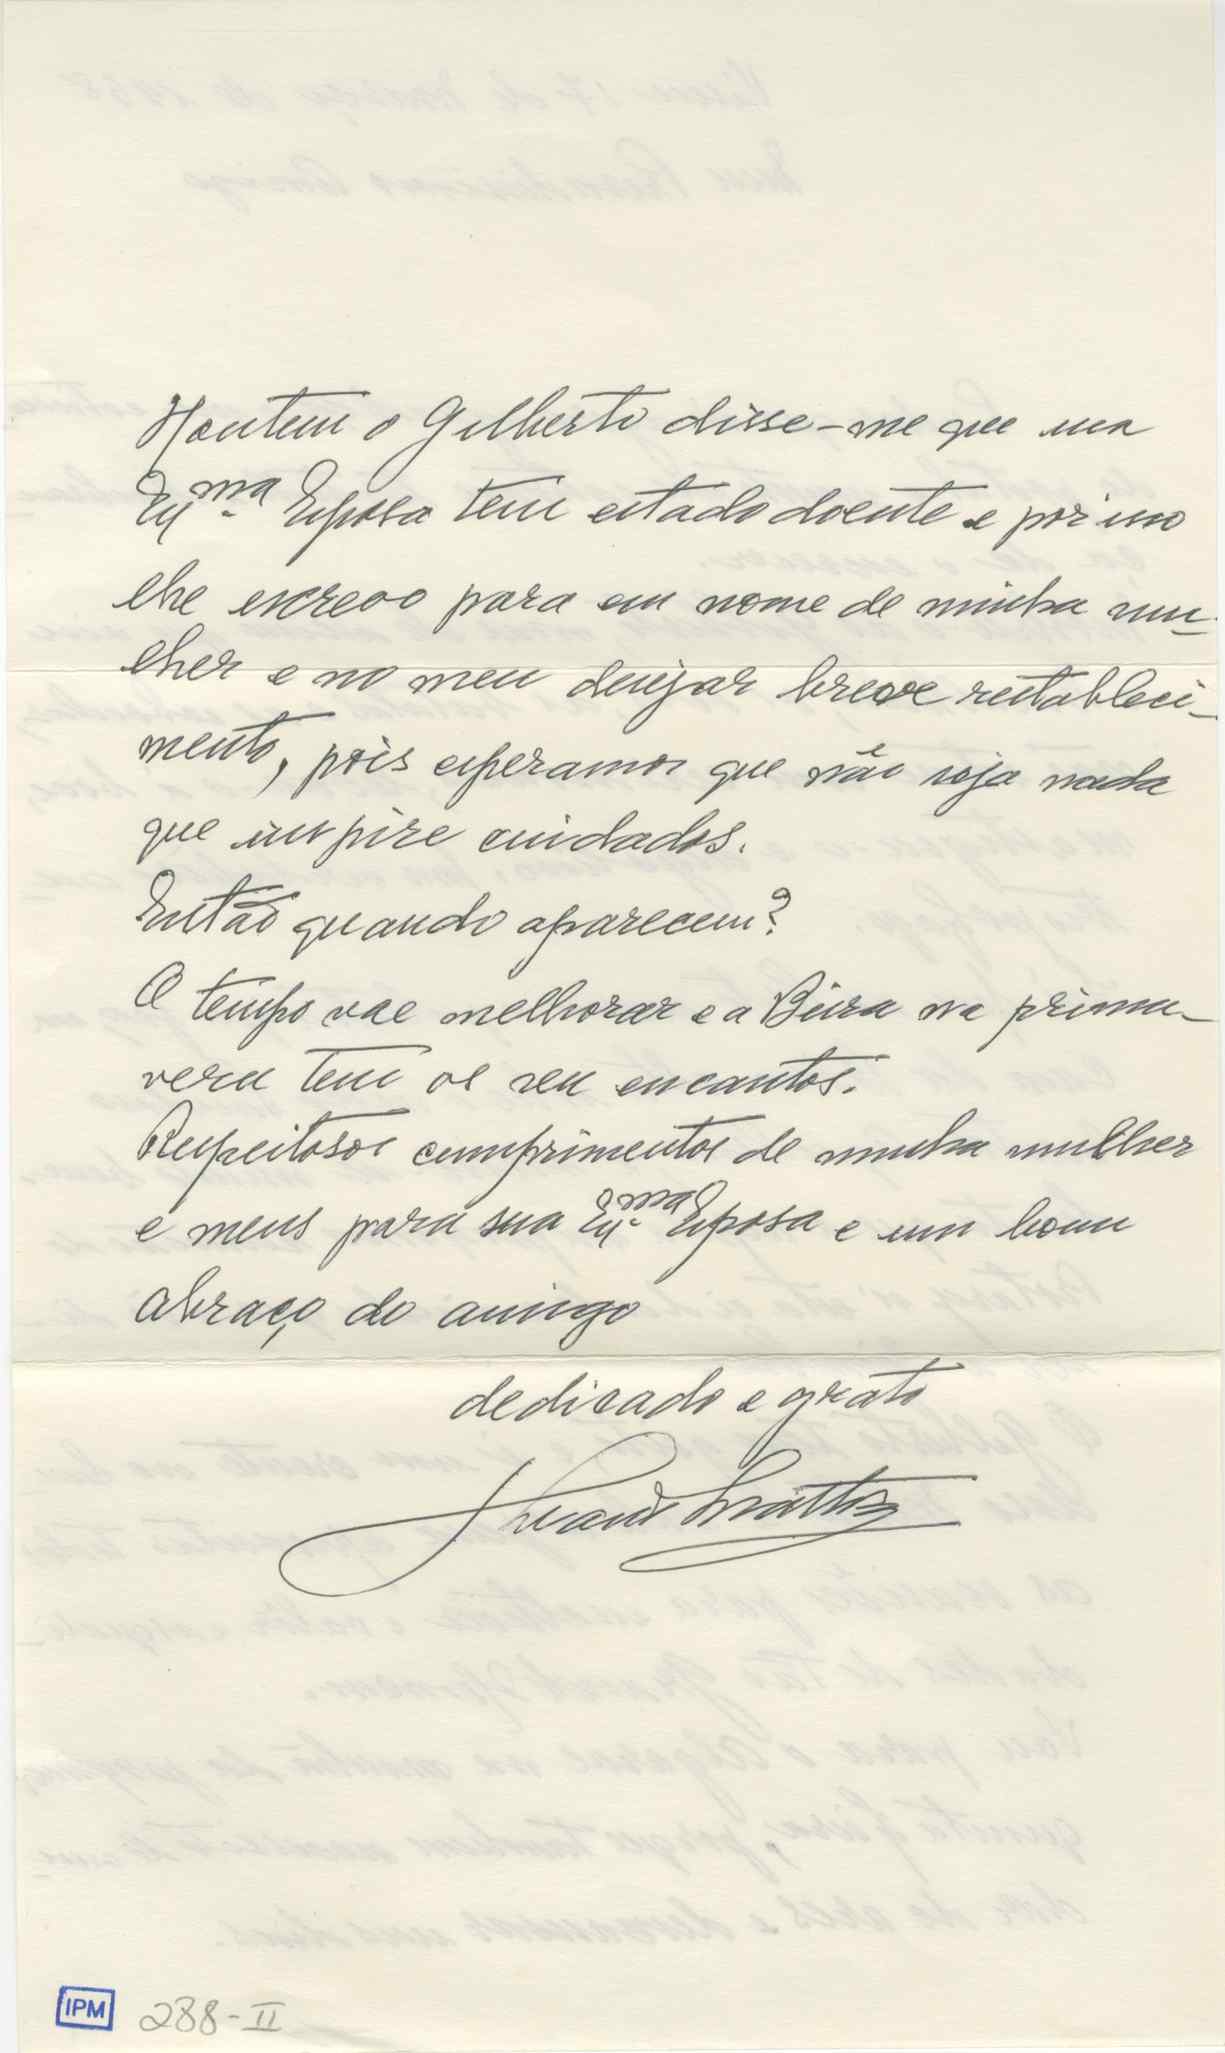 Hontem o Gilberto disse-me que sua
Exma. Esposa tem estado doente e por isso
lhe escrevo para em nome de minha mu-
lher e no meu desejar breve restableci-
mento, pois esperamos que não seja nada
que inspire cuidados.
Então quando aparecem?
O tempo vae melhorar e a Beira na prima-
vera tem os seu encantos.
Respeitosos cumprimentos de minha mulher
e meus para sua Exma. Esposa e um bom
abraço do amigo
dedicado e grato
IPM 288-II